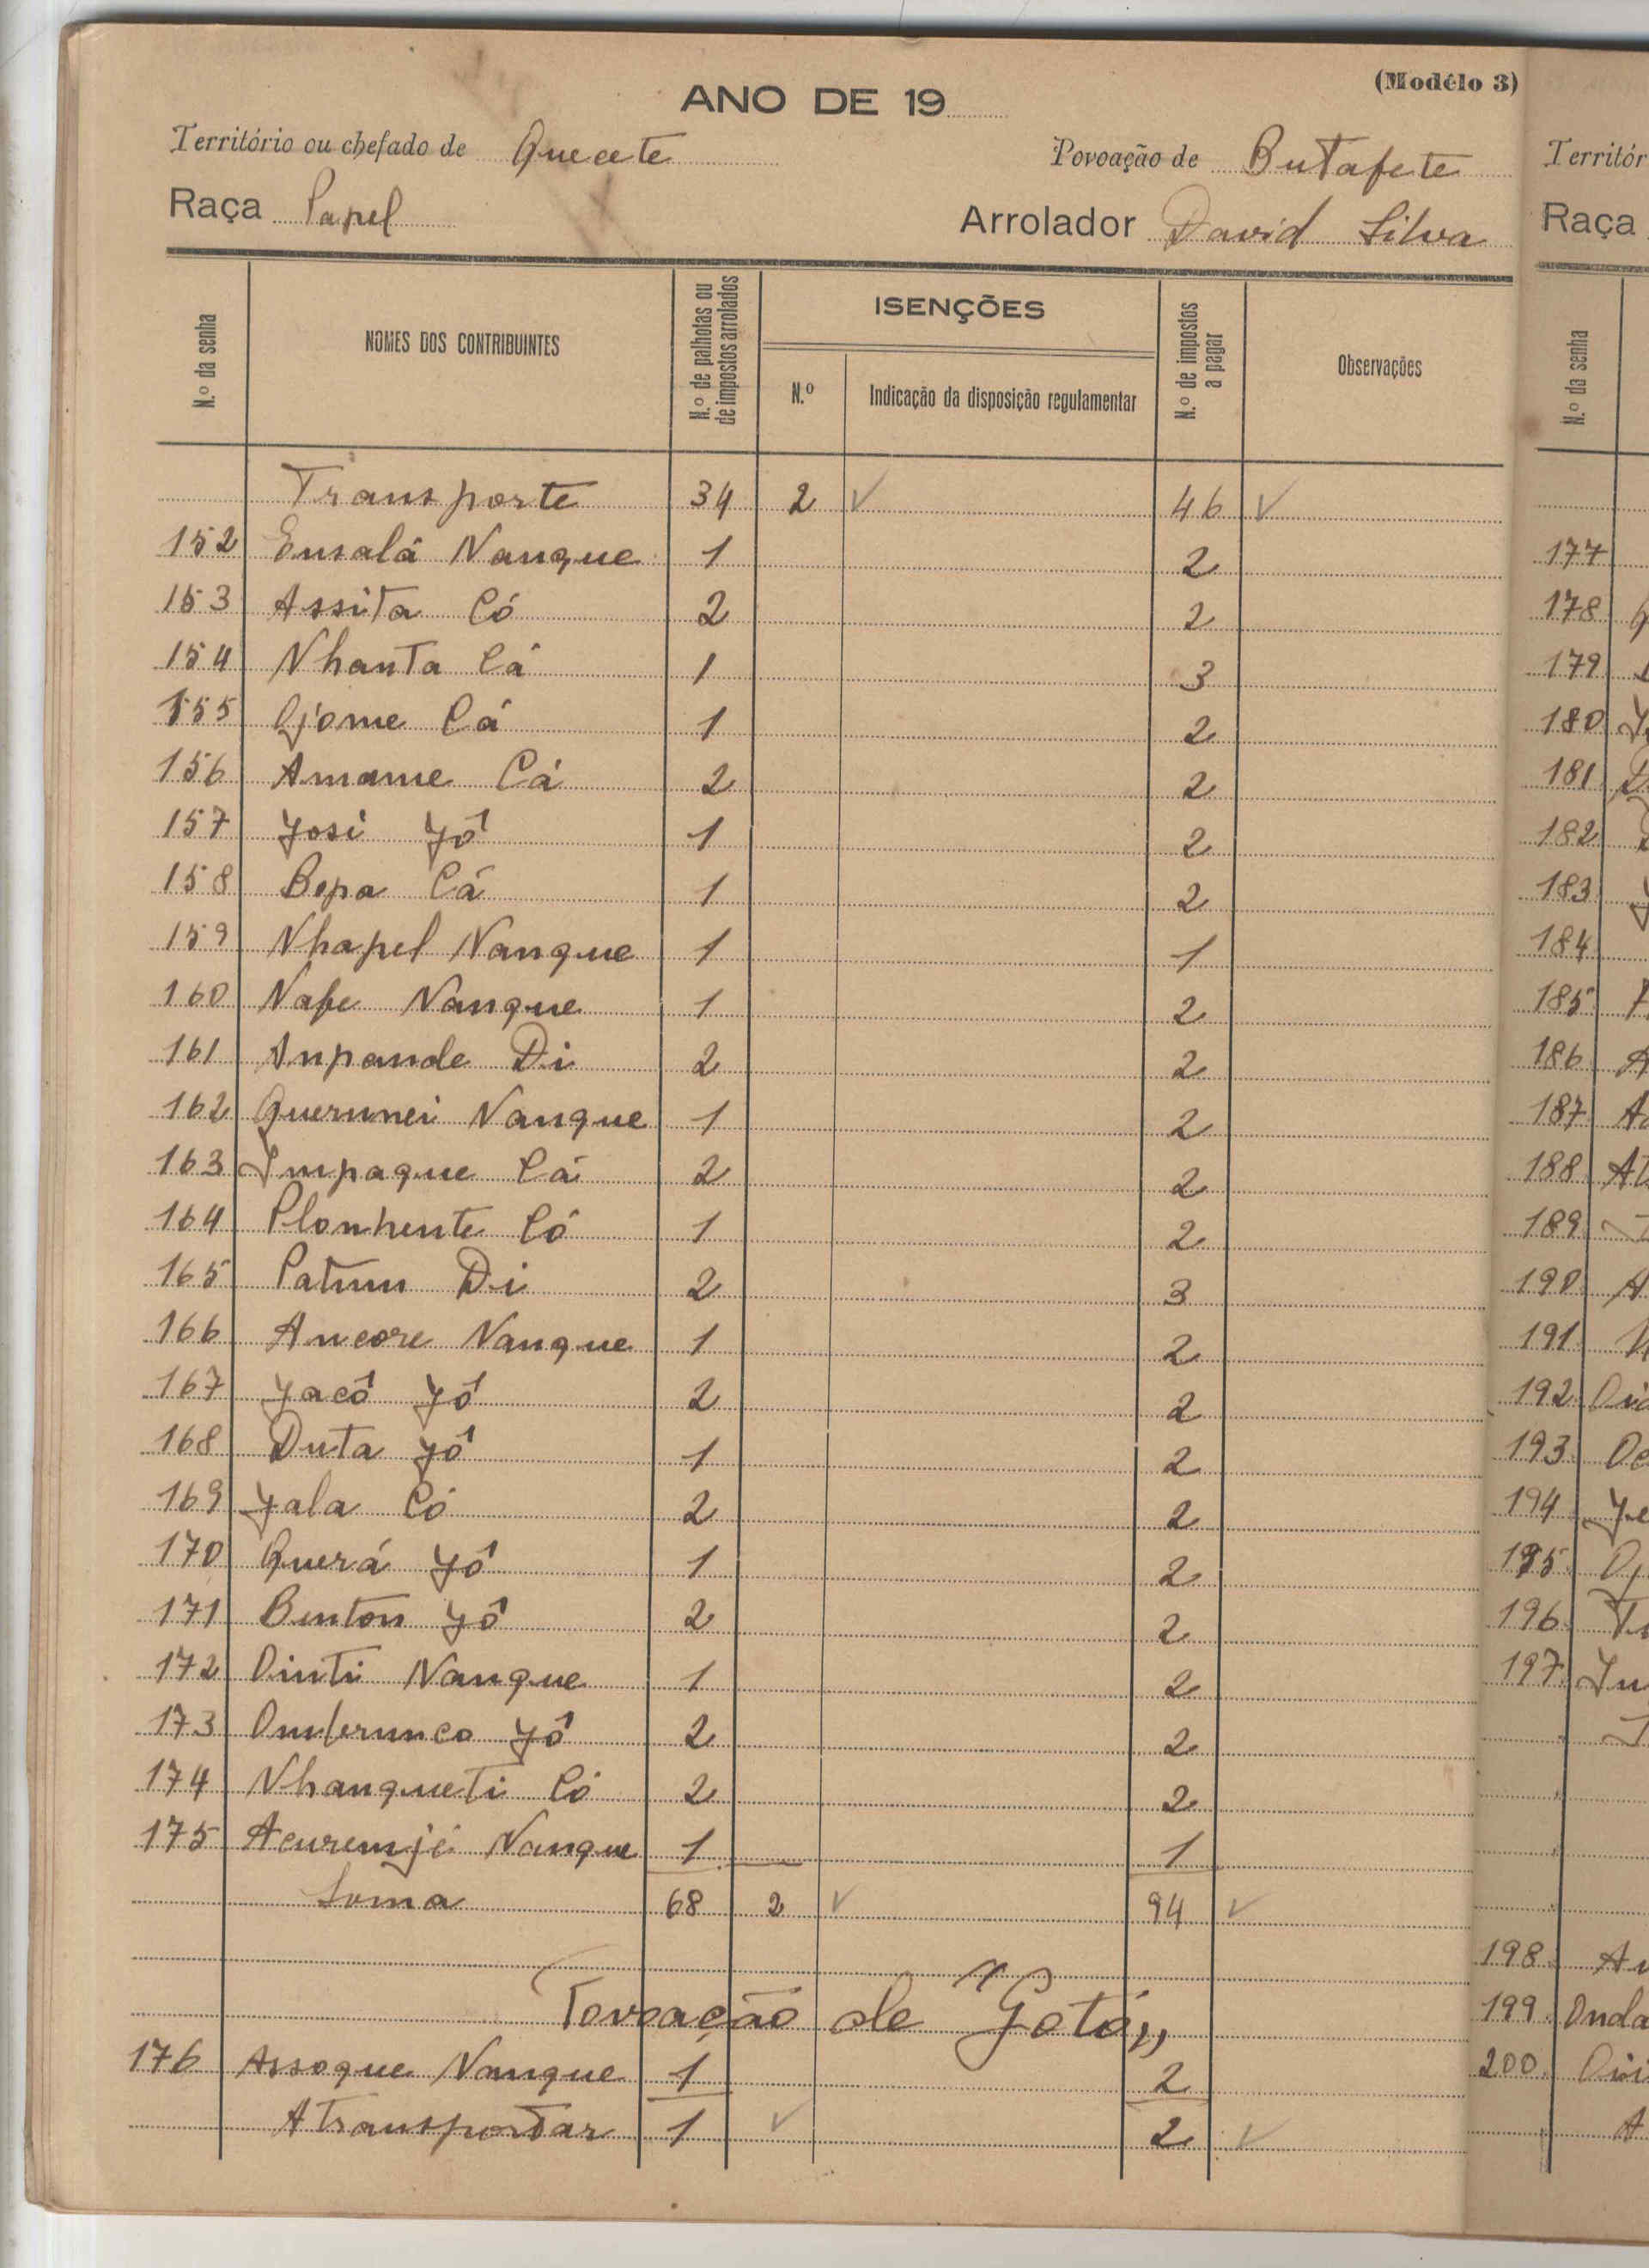 (Modêlo 3)
ANO DE 19
Território ou chefado de Quecete Povoação de Butafete
Raça Papel Arrolador David Silva
N.º da senha NOMES DOS CONTRIBUINTES N.º de palhotas ou de impostos arrolados ISENÇÕES N.º Indicação da disposição regulamentar N.º de impostos a pagar Observações
Transporte 34 2 ✓ 46 ✓
152 Ensalá Nanque 1 2
153 Assita Có 2 2
154 Nhanta Cá 1 3
155 Ojome Cá 1 2
156 Amame Cá 2 2
157 José Yô 1 2
158 Bopa Cá 1 2
159 Nhapel Nanque 1 1
160 Nafe Nanque 1 2
161 Anpande Di 2 2
162 Querunei Nanque 1 2
163 Impaque Cá 2 2
164 Plonhente Có 1 2
165 Patum Di 2 3
166 Ancore Nanque 1 2
167 Yacô Yô 2 2
168 Duta Yô 1 2
169 Yala Có 2 2
170 Querá Yô 1 2
171 Binton Yô 2 2
172 Ointi Nanque 1 2
173 Onubrunco Yô 2 2
174 Nhanqueti Có 2 2
175 Acuremjé Nanque 1 1
Soma 68 2 ✓ 94 ✓
Povoação de Yotó,,
176 Assoque Nanque 1 2
A transportar 1 ✓ 2 ✓
Territór
Raça
N.º da senha
177
178
179
180
181
182
183
184
185
186
187
188
189
190
191
192
193
194
195
196
197
198
199
200